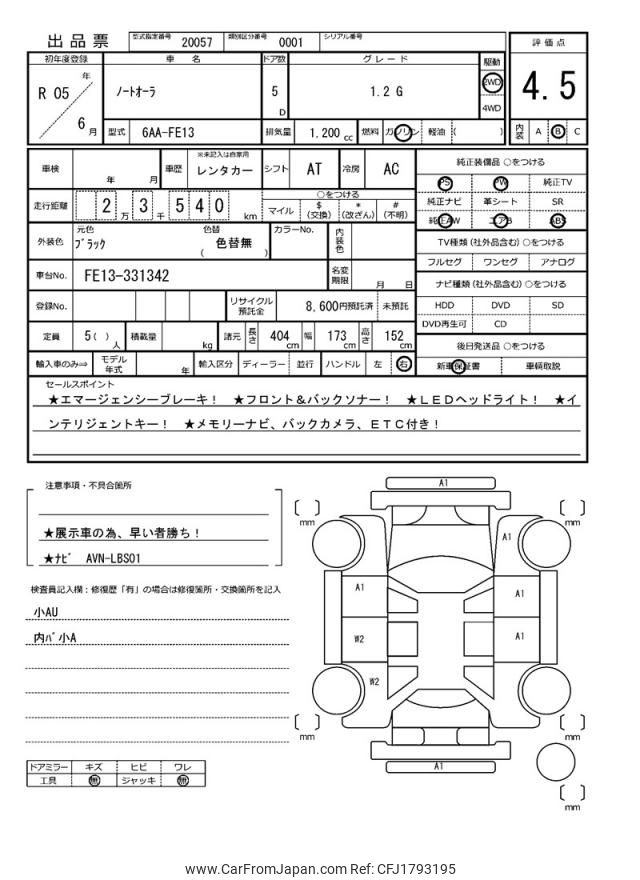 出品票 型式指定番号 20057 類別区分番号 0001 シリアル番号
評価点
4.5
内装 A B C
初年度登録 車名 ドア数 グレード 駆動
R 05 年 6 月
ノートオーラ 5 D 1.2 G 2WD 4WD
型式 6AA-FE13 排気量 1,200 cc 燃料 ガソリン 軽油 ( )
車検 年 月 車歴 ※未記入は自家用 レンタカー シフト AT 冷房 AC
走行距離 2 万 3 千 5 4 0 km
○をつける
マイル $ (交換) * (改ざん) # (不明)
外装色 元色 ブラック 色替 ( 色替無 ) カラーNo. 内装色
車台No. FE13-331342 名変期限 月 日
登録No. リサイクル預託金 8,600円預託済 未預託
定員 5( ) 人 積載量 kg 諸元 長さ 404 cm 幅 173 cm 高さ 152 cm
輸入車のみ⇒ モデル年式 年 輸入区分 ディーラー 並行 ハンドル 左 右
純正装備品 ○をつける
PS PW 純正TV
純正ナビ 革シート SR
純正AW エアB ABS
TV種類 (社外品含む) ○をつける
フルセグ ワンセグ アナログ
ナビ種類 (社外品含む) ○をつける
HDD DVD SD
DVD再生可 CD
後日発送品 ○をつける
新車保証書 車輌取説
セールスポイント
★エマージェンシーブレーキ！ ★フロント＆バックソナー！ ★ＬＥＤヘッドライト！ ★イ
ンテリジェントキー！ ★メモリーナビ、バックカメラ、ＥＴＣ付き！
注意事項・不具合箇所
★展示車の為、早い者勝ち！
★ﾅﾋﾞ AVN-LBS01
検査員記入欄：修復歴「有」の場合は修復箇所・交換箇所を記入
小AU
内ﾊﾞ小A
ドアミラー キズ ヒビ ワレ
工具 無 ジャッキ 無
A1
mm mm
A1
A1 A1
W2 A1
W2
mm mm
A1
mm
www.CarFromJapan.com Ref: CFJ1793195